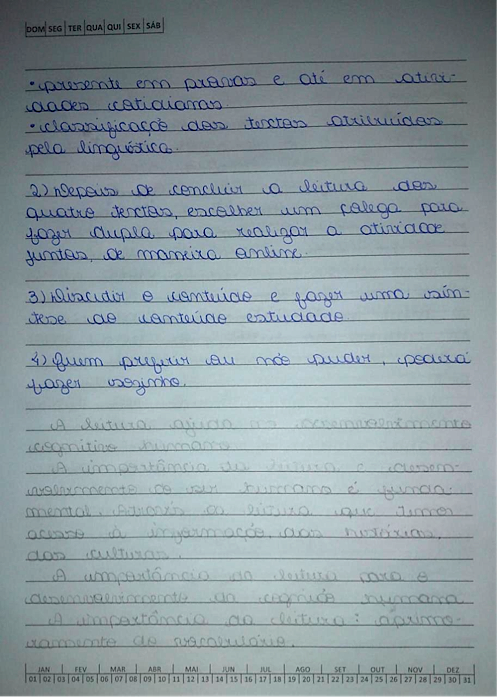 DOM SEG TER QUA QUI SEX SÁB
• presente em provas e até em ativi-
dades cotidianas
• classificação dos textos atribuídas
pela linguística.
2) Depois de concluir a leitura dos
quatro textos, escolher um colega para
fazer dupla para realizar a atividade
juntas, de maneira online.
3) Discutir o conteúdo e fazer uma sín-
tese do conteúdo estudado
4) Quem preferir ou não puder, poderá
fazer sozinho.
A leitura ajuda no desenvolvimento
cognitivo humano
A importância da leitura e desen-
volvimento do ser humano é funda-
mental. Através da leitura que temos
acesso à informação, das histórias,
das culturas.
A importância da leitura para o
desenvolvimento da cognição humana
A importância da leitura: aprimo-
ramento do vocabulário.
JAN FEV MAR ABR MAI JUN JUL AGO SET OUT NOV DEZ
01 02 03 04 05 06 07 08 09 10 11 12 13 14 15 16 17 18 19 20 21 22 23 24 25 26 27 28 29 30 31